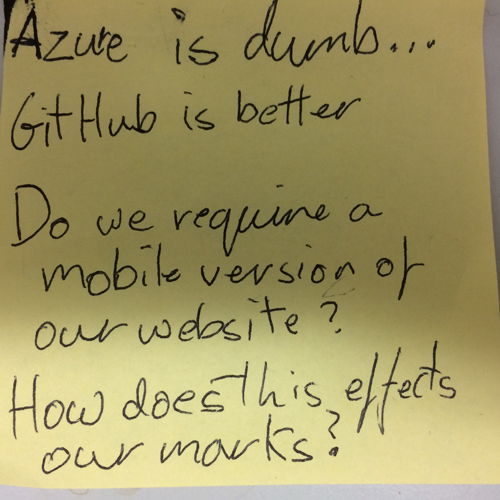 Azure is dumb...
GitHub is better
Do we require a
mobile version of
our website?
How does this effects
our marks?